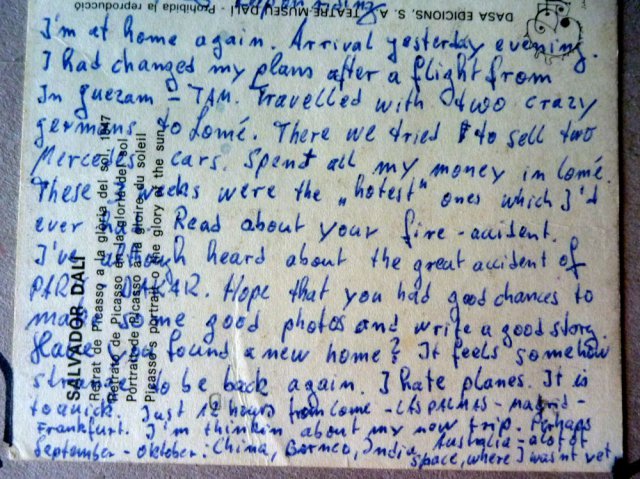 DASA EDICIONS, S. A.
TEATRE-MUSEU DALÍ - Prohibida la reproducció
SALVADOR DALÍ
Retrat de Picasso a la glòria del sol, 1947
Retrato de Picasso en la gloria del sol
Portrait de Picasso à la gloire du soleil
Picasso's portrait o the glory of the sun
I'm at home again. Arrival yesterday evening.
I had changed my plans after a flight from
In guezam - TAM. Travelled with two crazy
germans to Lomé. There we tried to sell two
Mercedes cars. Spent all my money in lomé.
These weeks were the „hotest" ones which I'd
ever Read about your fire-accident.
I've although heard about the great accident of
PARIS DAKAR. Hope that you had good chances to
make some good photos and write a good story.
Have you found a new home? It feels somehow
strange to be back again. I hate planes. It is
to quick. Just 12 hours from Lome - LAS PALMAS - Madrid -
Frankfurt. I'm thinkin about my new trip. Perhaps
September - Oktober: China, Borneo, India, Australia - alot of
space, where I wasnt yet